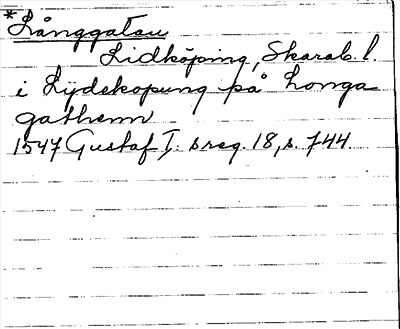 *Långgatan
Lidköping, Skarab. l.
i Lydekopung på Longa
gathenn
1547 Gustaf I:s reg. 18, s. 744.